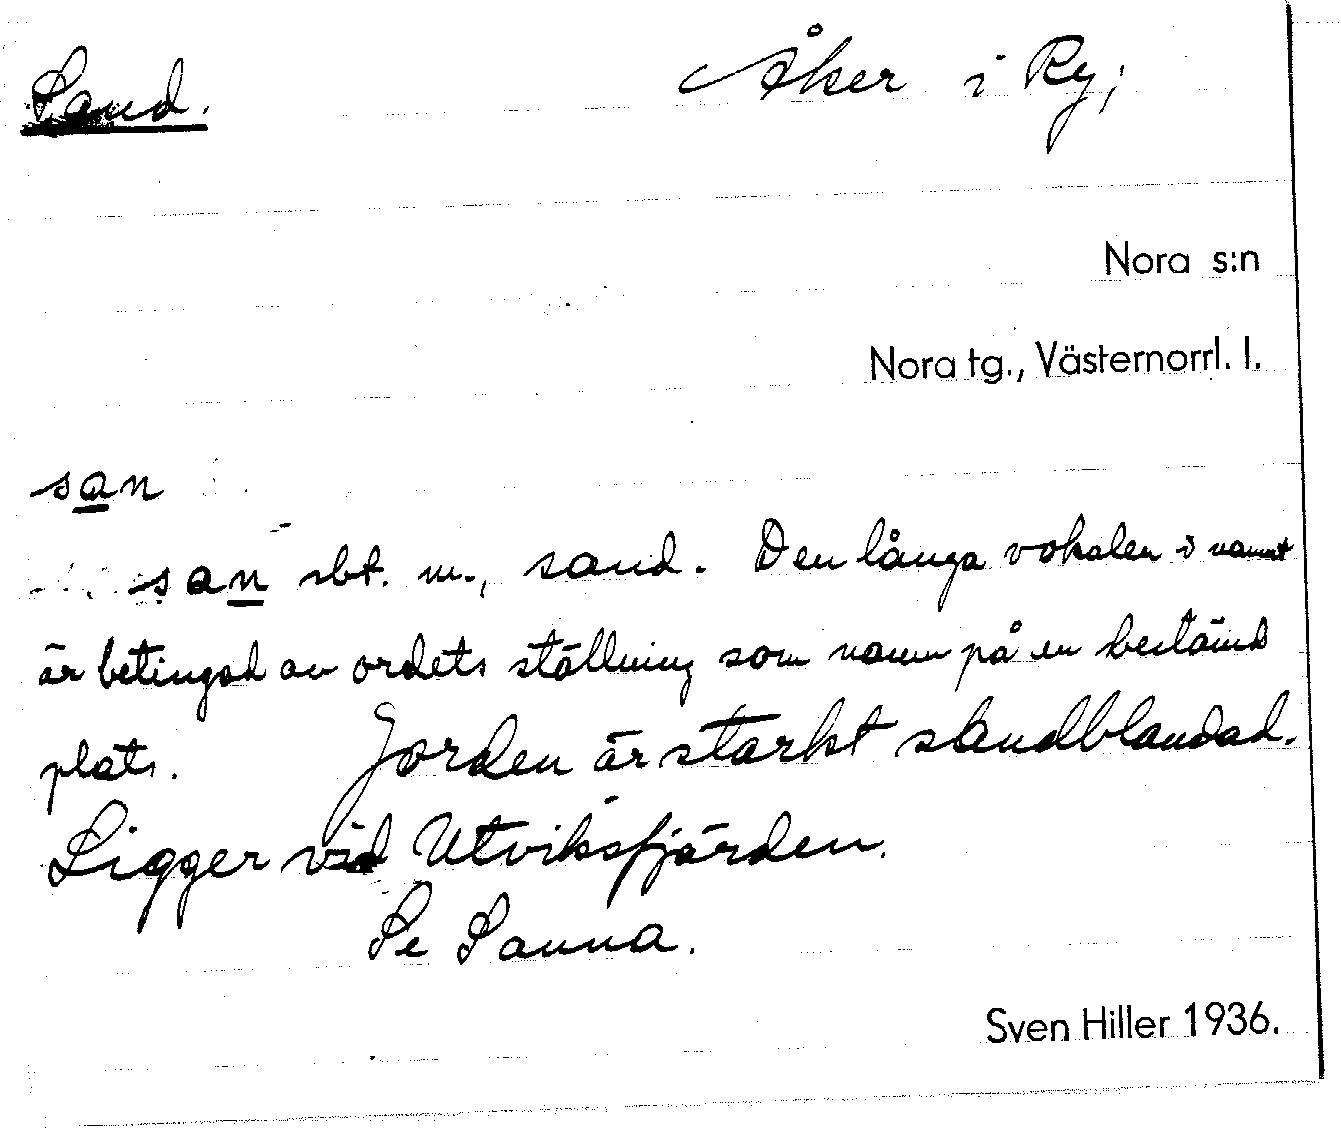 Sand. Åker i Ry;
Nora s:n
Nora tg., Västernorrl. l.
san
san sbt. m., sand. Den långa vokalen i namnet
är betingad av ordets ställning som namn på en bestämd
plats. Jorden är starkt sandblandad.
Ligger vid Utviksfjärden.
Se Sanna.
Sven Hiller 1936.